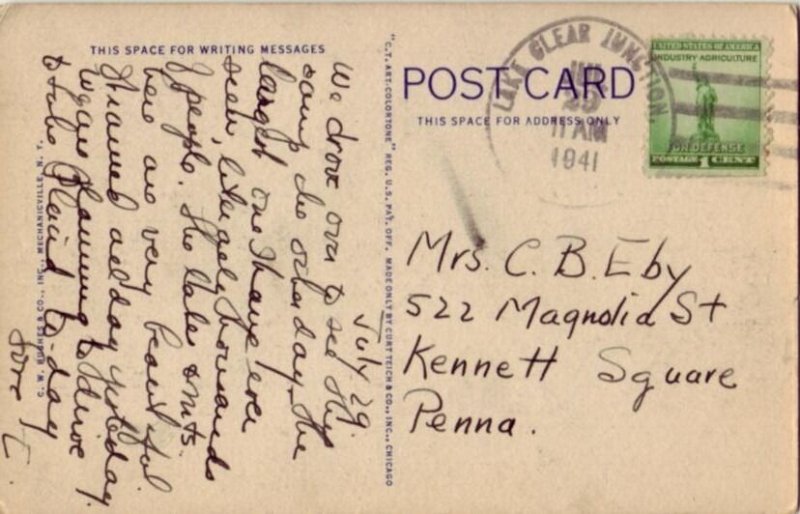 THIS SPACE FOR WRITING MESSAGES
POST CARD
THIS SPACE FOR ADDRESS ONLY
LAKE CLEAR JUNCTION
JUL
29
11 AM
1941
UNITED STATES OF AMERICA
INDUSTRY AGRICULTURE
FOR DEFENSE
POSTAGE 1 CENT
July 29.
We drove over to see this
camp the other day, the
largest one I have ever
seen, literally thousands
of people. The lakes & mts.
here are very beautiful
It rained all day yesterday.
We are planning to drive
to Lake Placid to-day
Love
E.
Mrs. C. B. Eby
522 Magnolia St
Kennett Square
Penna.
"C.T. ART-COLORTONE" REG. U.S. PAT. OFF. MADE ONLY BY CURT TEICH & CO., INC., CHICAGO
C. W. HUGHES & CO., INC., MECHANICVILLE, N. Y.